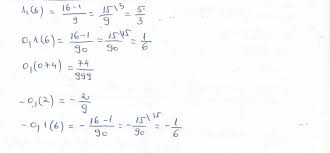 1,(6) = 16-1/9 = 15\3/9 = 5/3
0,1(6) = 16-1/90 = 15\15/90 = 1/6
0,(074) = 74/999
-0,(2) = -2/9
-0,1(6) = -16-1/90 = -15\15/90 = -1/6